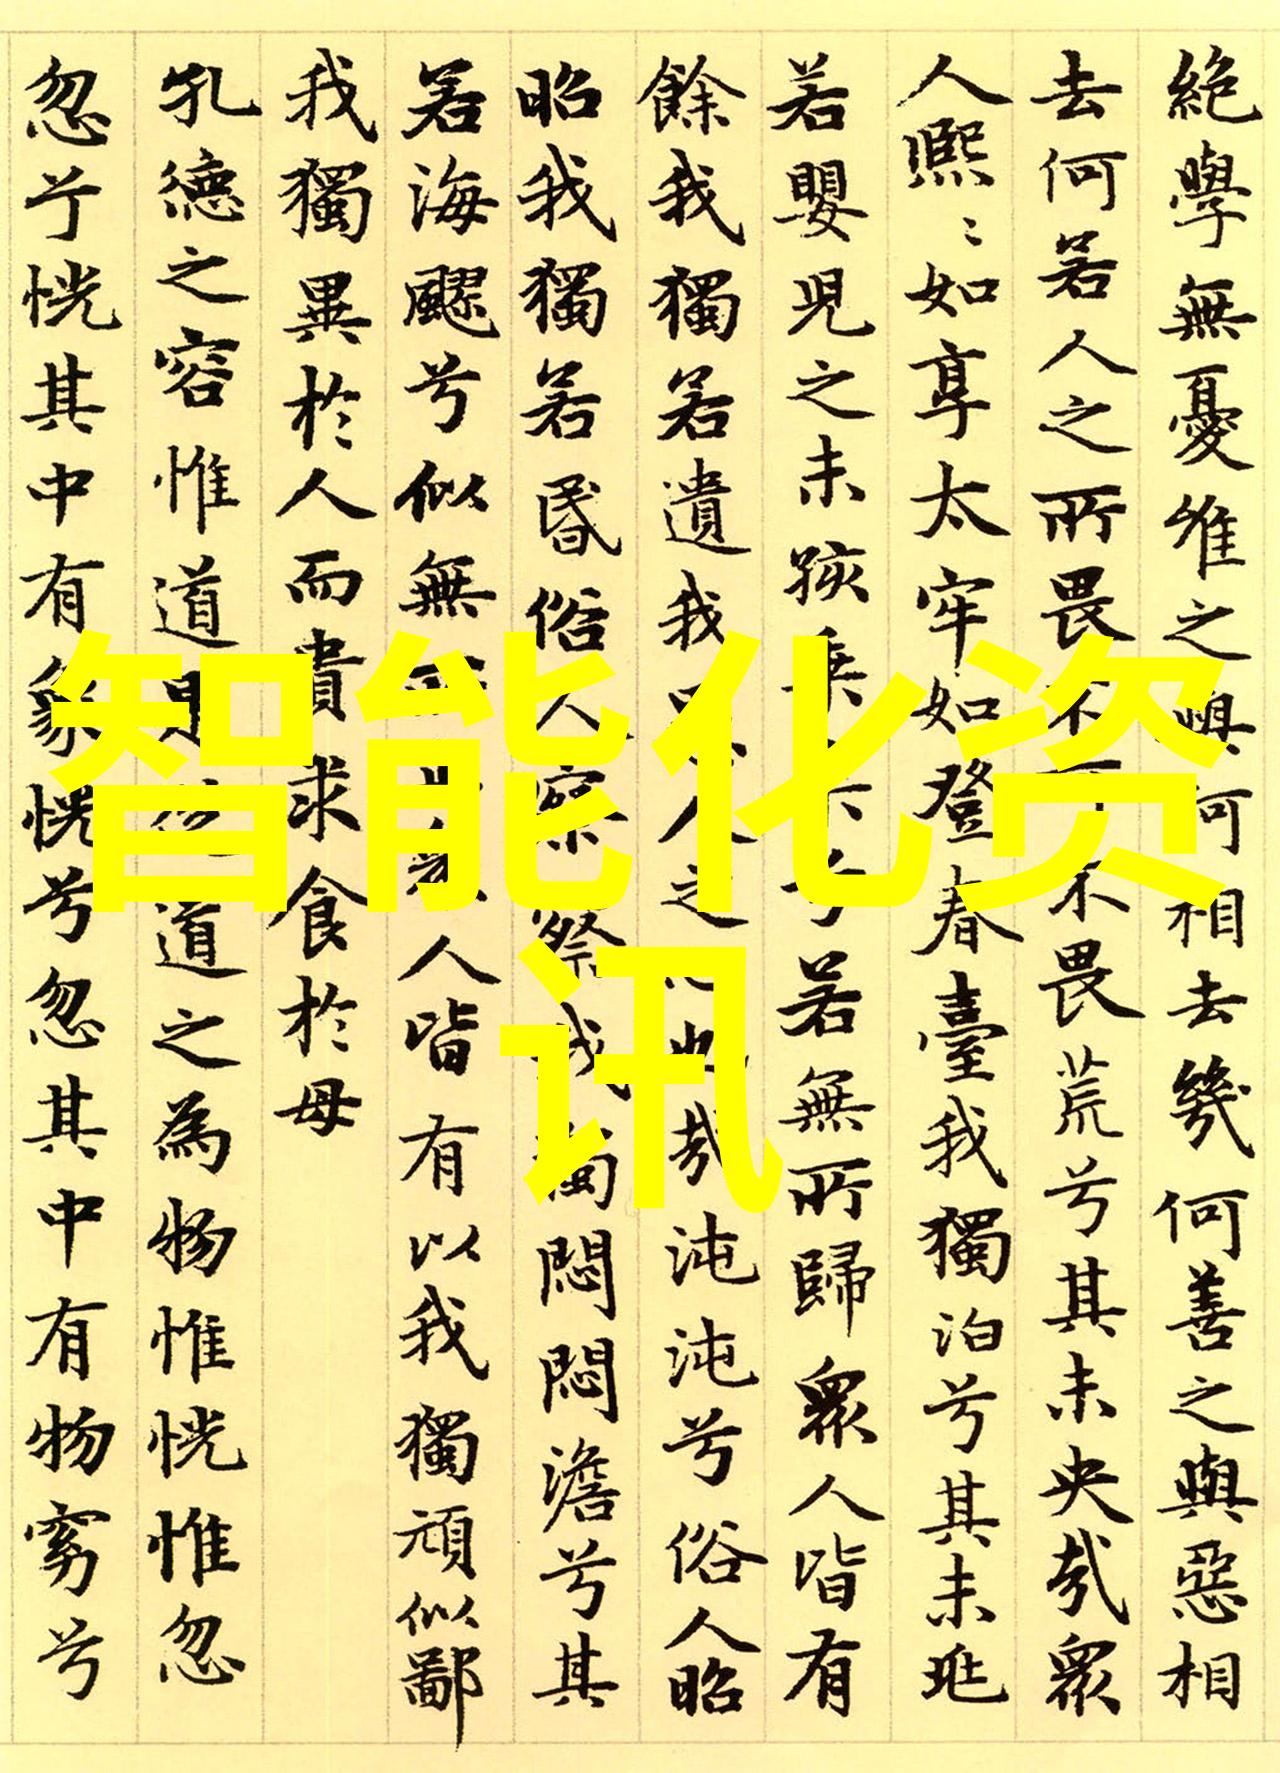 絶學無憂唯之與何相去幾何善之與惡相
去何若人之所畏不可不畏荒兮其未央哉眾
人熙〻如享太牢如登春臺我獨泊兮其未兆
若嬰兒之未孩乗兮若無所歸眾人皆有
餘我獨若遺我人之也哉沌沌兮俗人昭
昭我獨若昏俗人察察我獨悶悶澹兮其
若海飂兮似無人皆有以我獨頑似鄙
我獨異於人而貴求食於母
孔德之容惟道是道之為物惟恍惟忽
忽兮恍其中有象恍兮忽其中有物窈兮
智能化资
讯